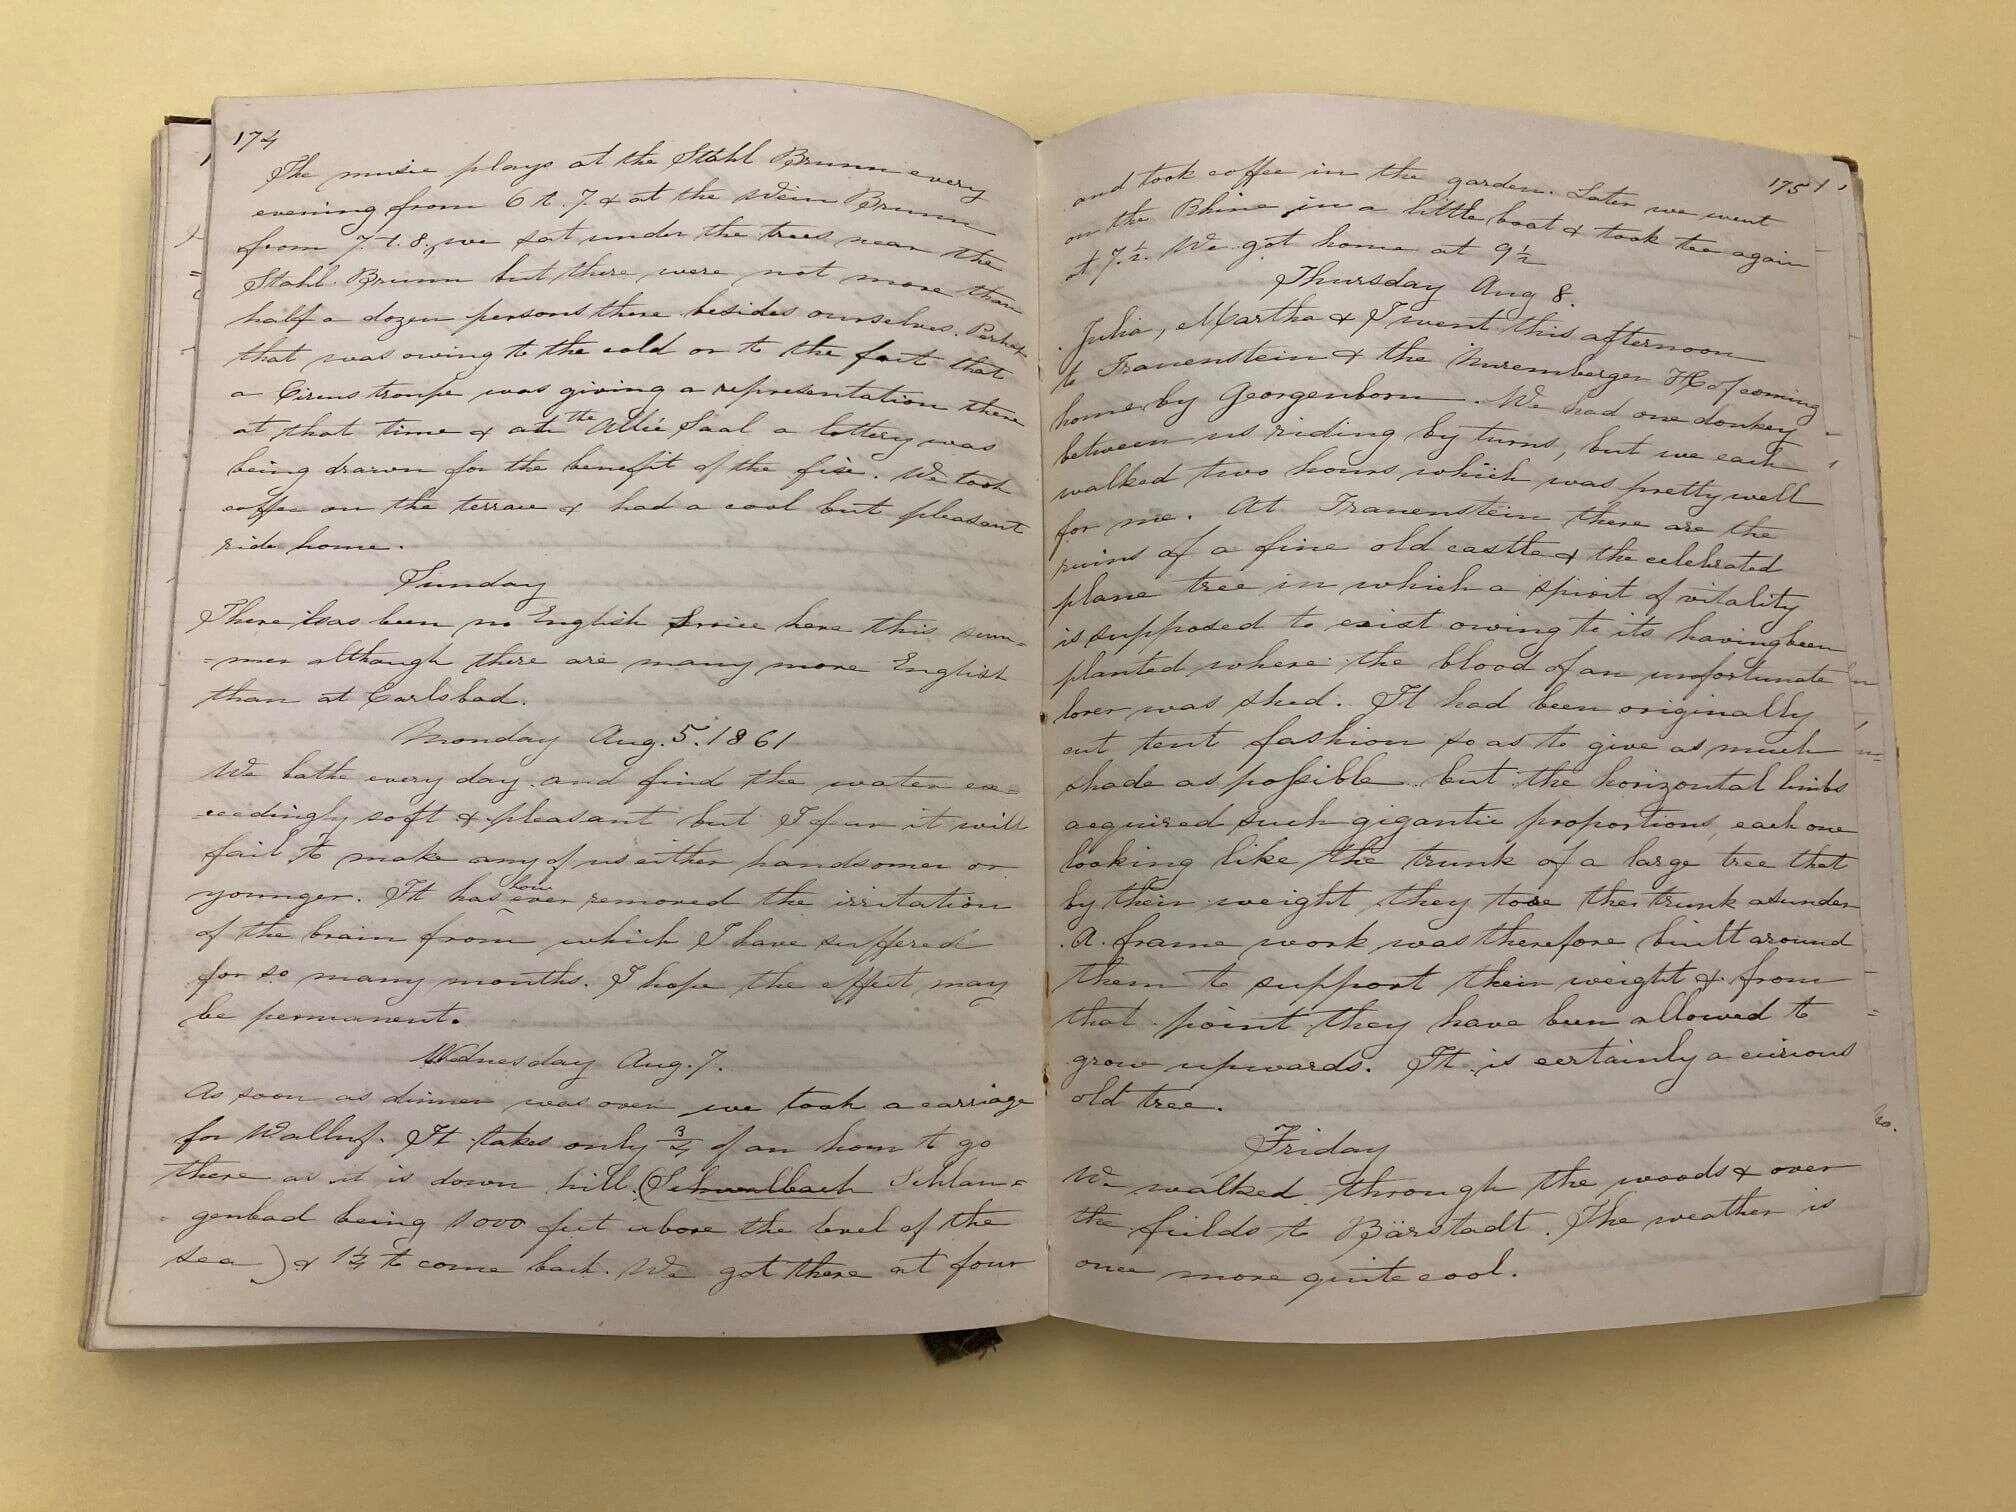 174
The music plays at the Stahl Brunn every
evening from 6 t. 7. & at the Wein Brunn
from 7 t. 8. we sat under the trees near the
Stahl Brunn but there were not more than
half a dozen persons there besides ourselves. Perhaps
that was owing to the cold or to the fact that
a Circus troupe was giving a representation there
at that time & at the Allie Saal a lottery was
being drawn for the benefit of the fire. We took
coffee on the terrace & had a cool but pleasant
ride home.
Sunday
There has been no English Service here this sum=
=mer although there are many more English
than at Carlsbad.
Monday Aug. 5. 1861
We bathe every day and find the water ex=
=ceedingly soft & pleasant but I fear it will
fail to make any of us either handsomer or
younger. It has however removed the irritation
of the brain from which I have suffered
for so many months. I hope the effect may
be permanent.
Wednesday Aug. 7.
As soon as dinner was over we took a carriage
for Walluf. It takes only 3/4 of an hour to go
there as it is down hill (Schwalbach Schlan=
=genbad being 1000 feet above the level of the
sea) & 1 1/4 to come back. We got there at four
175
and took coffee in the garden. Later we went
on the Rhine in a little boat & took tea again
at 7 1/2. We got home at 9 1/2
Thursday Aug 8.
Julia, Martha & I went this afternoon
to Frauenstein & the Nuremberger Hof coming
home by Georgenborn. We had one donkey
between us riding by turns, but we each
walked two hours which was pretty well
for me. At Frauenstein there are the
ruins of a fine old castle & the celebrated
plane tree in which a spirit of vitality
is supposed to exist owing to its having been
planted where the blood of an unfortunate
lover was shed. It had been originally
cut tent fashion so as to give as much
shade as possible but the horizontal limbs
acquired such gigantic proportions, each one
looking like the trunk of a large tree that
by their weight they tore the trunk asunder
A frame work was therefore built around
them to support their weight & from
that point they have been allowed to
grow upwards. It is certainly a curious
old tree.
Friday
We walked through the woods & over
the fields to Bärstadt. The weather is
once more quite cool.